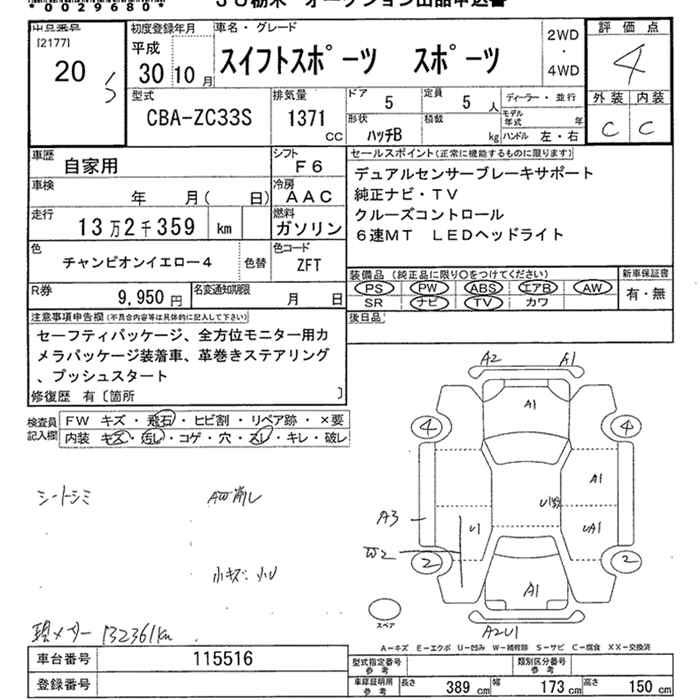 *0029680*
JU栃木 オークション出品申込書
出品番号
[2177]
20
S
初度登録年月
平成
30 10 月
車名・グレード
スイフトスポーツ スポーツ
2WD
・
4WD
評価点
4
外装 内装
C C
型式
CBA-ZC33S
排気量
1371
CC
ドア
5
定員
5 人
ディーラー・並行
モデル年式 年
形状
ハッチB
積載
kg
ハンドル 左・右
車歴
自家用
シフト
F6
車検
年 月( 日)
冷房
AAC
走行
13万2千359 km
燃料
ガソリン
色
チャンピオンイエロー4
色替
色コード
ZFT
R券
9,950 円
名変通知期限
月 日
セールスポイント(正常に機能するものに限ります)
デュアルセンサーブレーキサポート
純正ナビ・TV
クルーズコントロール
6速MT LEDヘッドライト
装備品(純正品に限り○をつけてください)
PS PW ABS エアB AW
SR ナビ TV カワ
新車保証書
有・無
後日品
注意事項申告欄(不具合内容等は具体的に記入して下さい)
セーフティパッケージ、全方位モニター用カ
メラパッケージ装着車、革巻きステアリング
、プッシュスタート
修復歴 有〔箇所 〕
検査員記入欄
FW キズ・飛石・ヒビ割・リペア跡・×要
内装 キズ・汚し・コゲ・穴・スレ・キレ・破レ
シートシミ
AW削レ
小キズ・小U
現メーター 132361km
A2 A1
A1
4 4
A1
A3
U1
UA1
W2
2 2
A1
A2U1
スペア
A-キズ E-エクボ U-凹み W-補修跡 S-サビ C-腐食 XX-交換済
車台番号
115516
登録番号
型式指定番号 参考
類別区分番号 参考
車庫証明用 参考
長さ 389 cm
幅 173 cm
高さ 150 cm